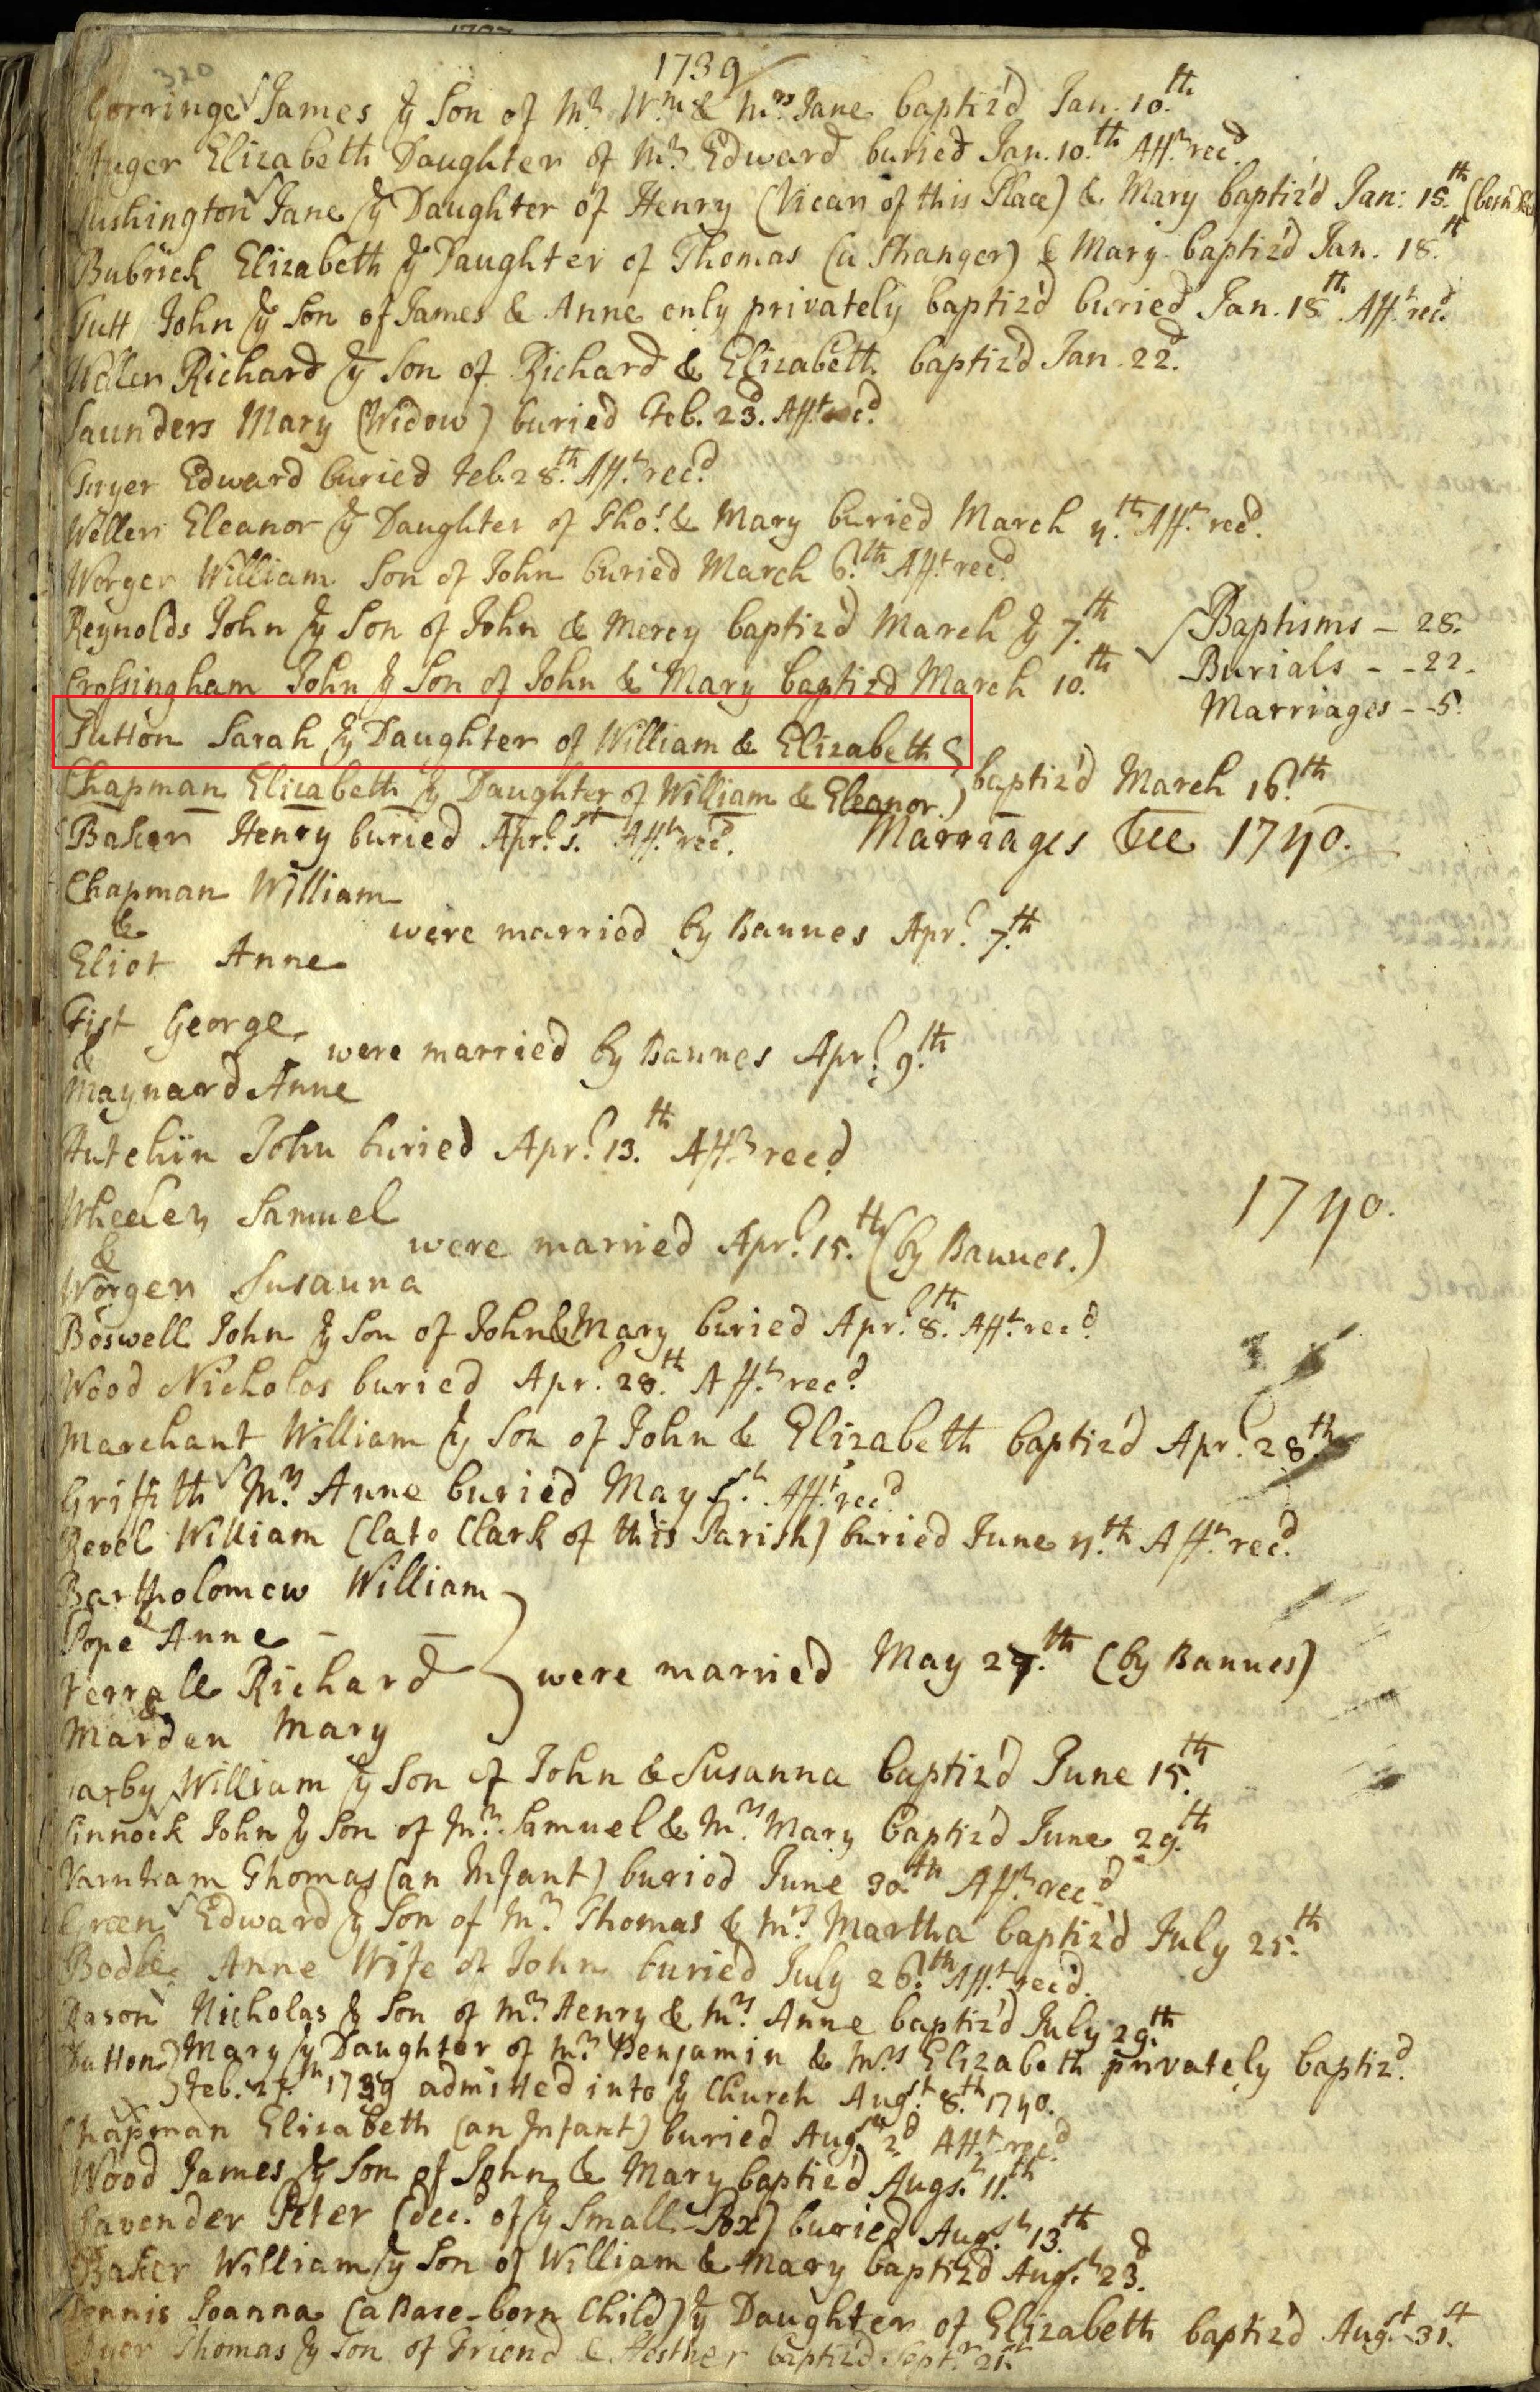 1739
320
Gorringe James ye Son of Mr. Wm. & Mrs. Jane baptiz'd Jan. 10.th
Elizabeth Daughter of Mr. Edward buried Jan. 10.th Afft. rec'd.
Lushington Jane ye Daughter of Henry (Vicar of this Place) & Mary baptiz'd Jan: 15.th (born
Bubrick Elizabeth ye Daughter of Thomas (a Stranger) & Mary baptiz'd Jan. 18.th
Tutt John ye Son of James & Anne only privately baptiz'd buried Jan. 18.th Afft. rec'd
Weller Richard ye Son of Richard & Elizabeth baptiz'd Jan. 22.d
Saunders Mary (Widow) buried Feb. 23.d Afft. rec'd.
Edward buried Feb. 28.th Afft. rec'd
Weller Eleanor ye Daughter of Thos. & Mary buried March 4.th Afft. rec'd.
Worger William Son of John buried March 6.th Afft. rec'd
Reynolds John ye Son of John & Mercy baptiz'd March ye 7.th
Crossingham John ye Son of John & Mary baptiz'd March 10.th
Baptisms – 28.
Burials – – 22.
Marriages – – 5.
Sutton Sarah ye Daughter of William & Elizabeth
Chapman Elizabeth ye Daughter of William & Eleanor.) baptiz'd March 16.th
Baker Henry buried Aprl. 5. Afft. rec'd. Marriages &c 1740.
Chapman William
& were married by Bannes Aprl. 7.th
Eliot Anne
Fist George
& were married by Bannes Aprl. 9.th
Maynard Anne
Hutchin John buried Aprl. 13.th Afft. rec'd
1740.
Wheeler Samuel
& were married Aprl. 15.th (by Bannes.)
Worger Susanna
Boswell John ye Son of John & Mary buried Aprl. 8.th Afft. rec'd.
Wood Nicholas buried Aprl. 28.th Afft. rec'd
Marchant William ye Son of John & Elizabeth baptiz'd Aprl. 28.th
Griffith Mrs. Anne buried May Afft. rec'd.
Revel William (late Clark of this Parish) buried June 4.th Afft. rec'd.
Bartholomew William
&
Pope Anne –
Verrall Richard were married May 27.th (by Bannes)
&
Marden Mary
William ye Son of John & Susanna baptiz'd June 15.th
Pinnock John ye Son of Mr. Samuel & Mrs. Mary baptiz'd June 29.th
Varnham Thomas (an Infant) buried June 30.th Afft. rec'd
Green Edward ye Son of Mr. Thomas & Mrs. Martha baptiz'd July 25.th
Bodle Anne Wife of John buried July 26.th Afft. rec'd.
Nicholas ye Son of Mr. Henry & Mrs. Anne baptiz'd July 29.th
Dutton) Mary ye Daughter of Mr. Benjamin & Mrs. Elizabeth privately baptiz'd.
) Feb. 27.th 1739 admitted into ye Church Augst. 8.th 1740.
Chapman Elizabeth (an Infant) buried Augst. 2.d Afft. rec'd
Wood James ye Son of John & Mary baptiz'd Augst. 11.th
Lavender Peter (dec'd. of ye Small-Pox) buried Augst. 13.th
Baker William ye Son of William & Mary baptiz'd Augst. 23.d
Dennis Joanna (a Base-born Child) ye Daughter of Elizabeth baptiz'd Augst. 31.st
Thomas ye Son of Friend & Hesther baptiz'd Septr. 21.st